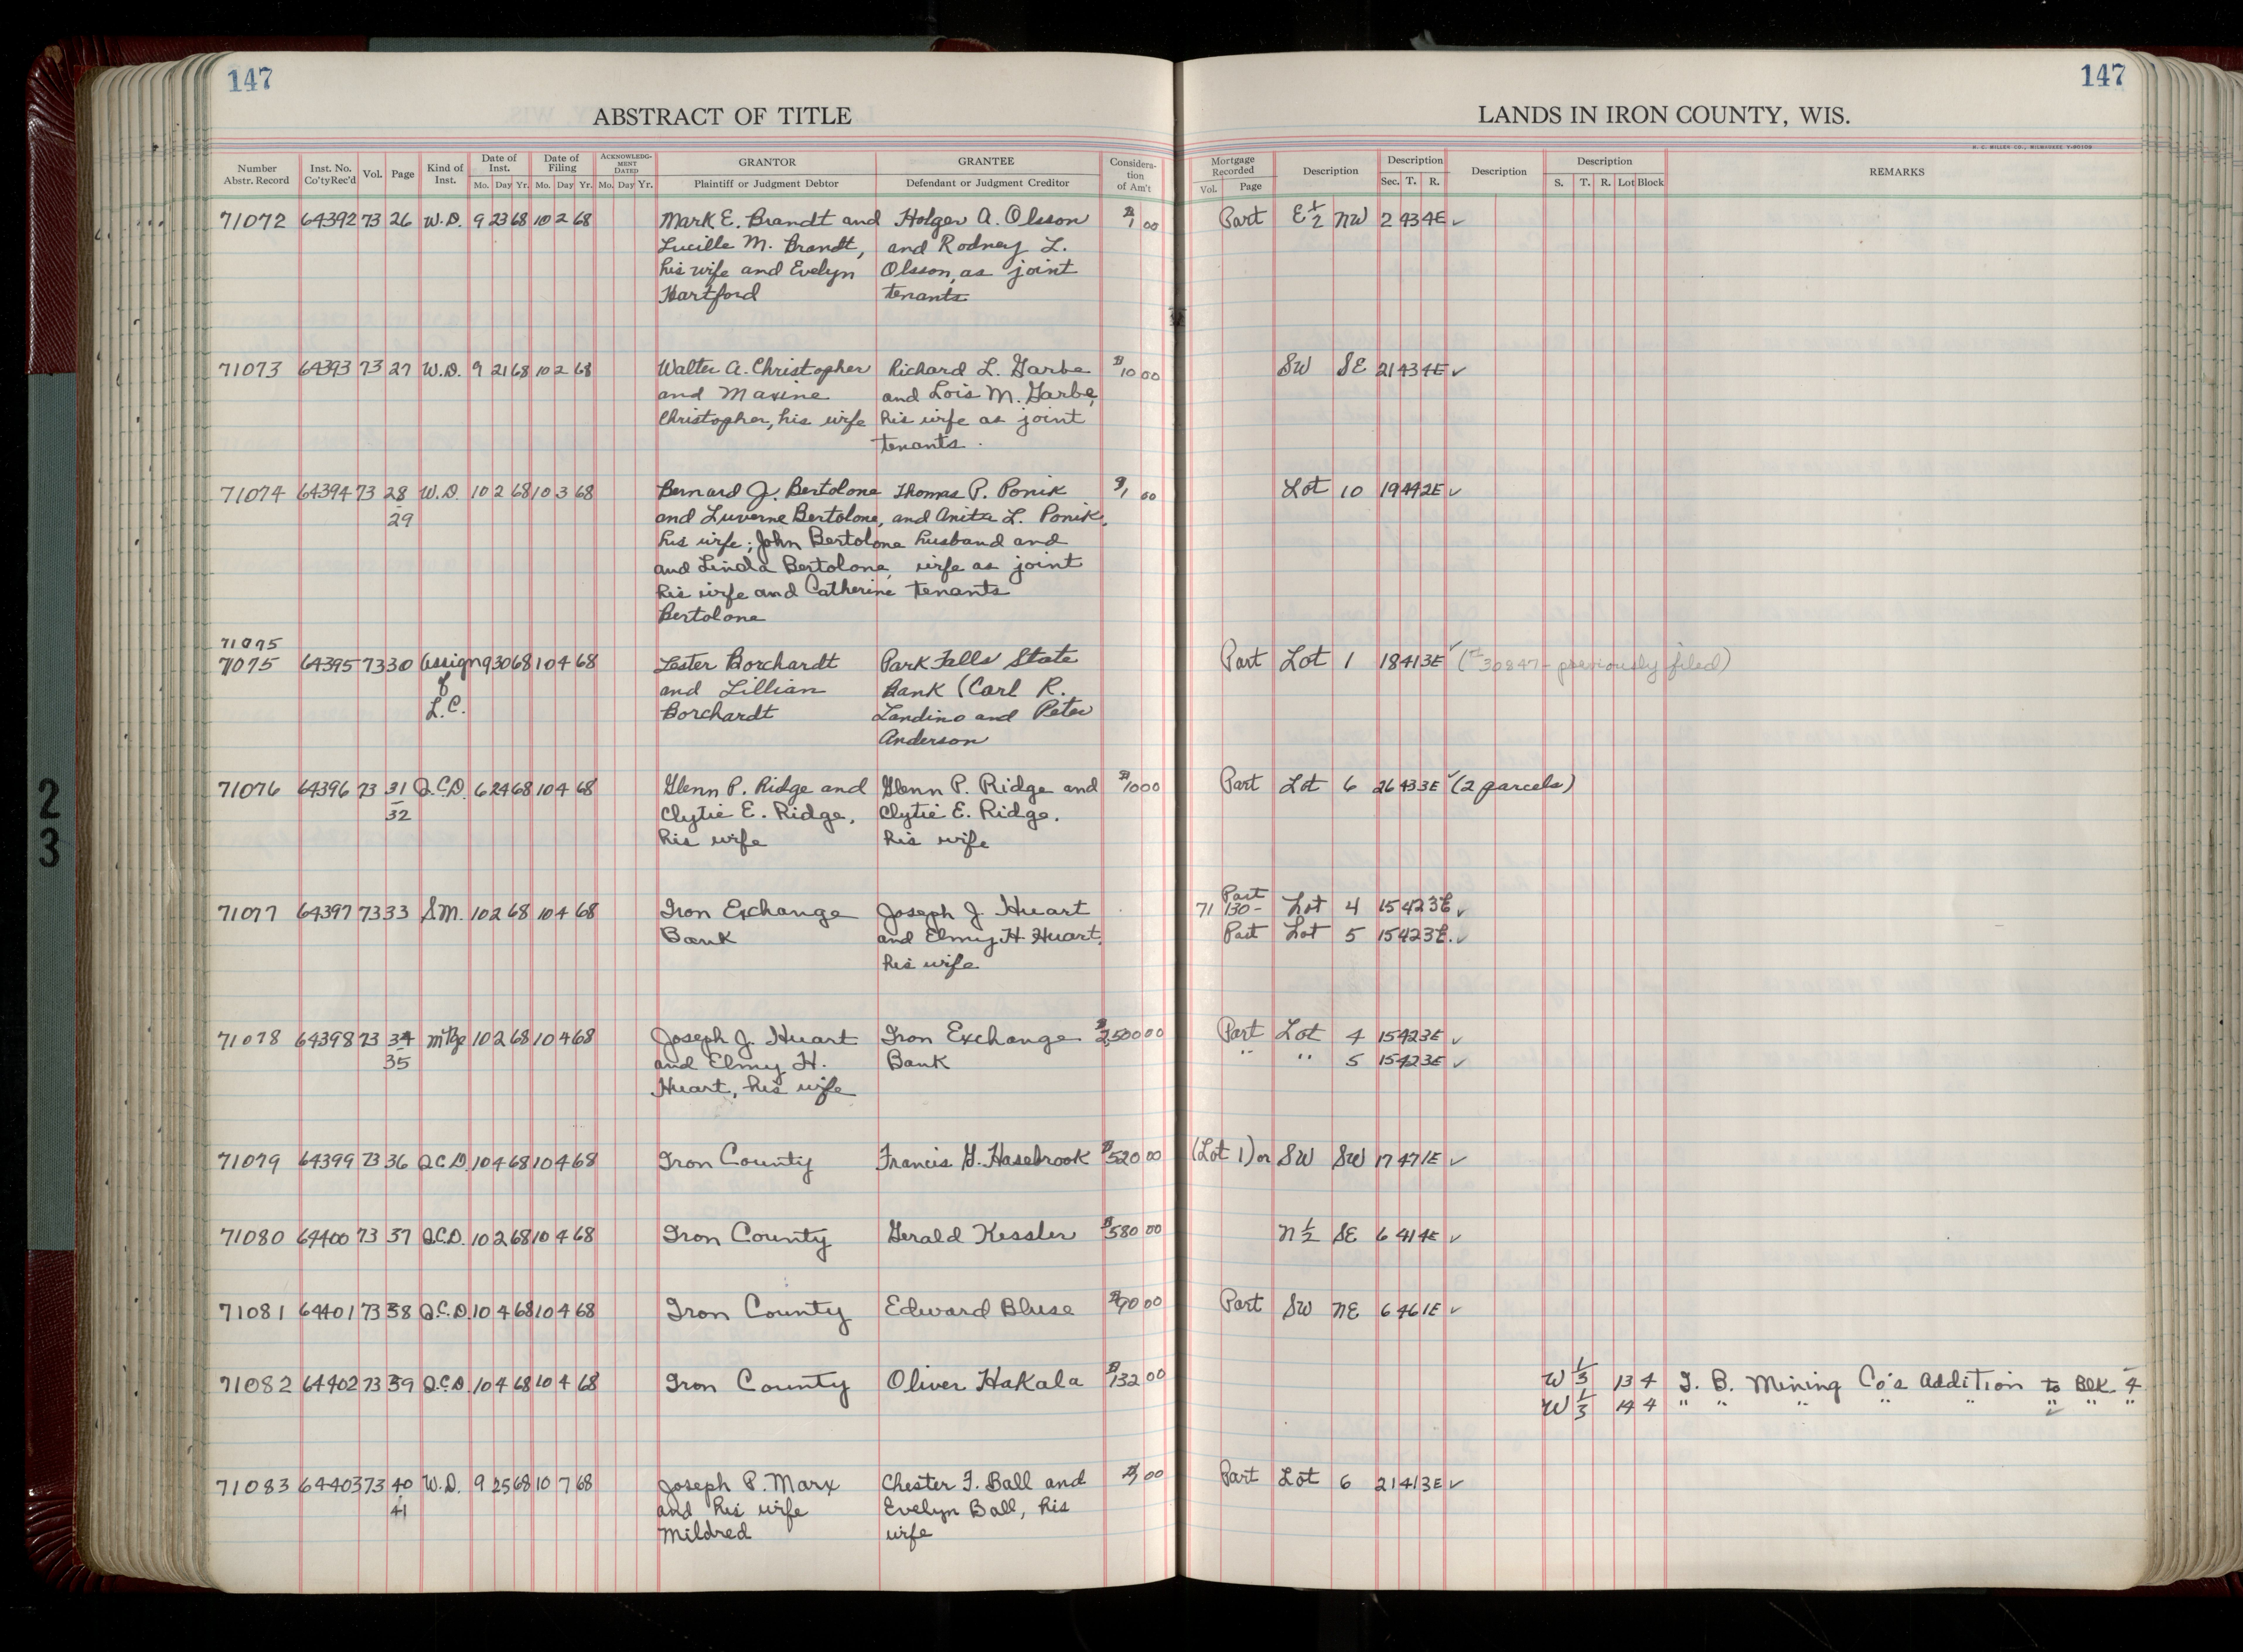 147
147
ABSTRACT OF TITLE
LANDS IN IRON COUNTY, WIS.
H. C. MILLER CO., MILWAUKEE
Number Abstr. Record Inst. No. Co'ty Rec'd Vol. Page Kind of Inst. Date of Inst. Mo. Day Yr. Date of Filing Mo. Day Yr. ACKNOWLEDGMENT DATED Mo. Day Yr. GRANTOR Plaintiff or Judgment Debtor GRANTEE Defendant or Judgment Creditor Consideration of Am't Mortgage Recorded Vol. Page Description Description Sec. T. R. Description Description S. T. R. Lot Block REMARKS
71072 64392 73 26 W.D. 9 23 68 10 2 68 Mark E. Brandt and Holger A. Olsson $1 00 Part E 1/2 NW 2 43 4E ✓
Lucille M. Brandt, and Rodney L.
his wife and Evelyn Olsson, as joint
Hartford tenants
71073 64393 73 27 W.D. 9 21 68 10 2 68 Walter A. Christopher Richard L. Garbe $10 00 SW SE 21 43 4E ✓
and Maxine and Lois M. Garbe,
Christopher, his wife his wife as joint
tenants.
71074 64394 73 28 W.D. 10 2 68 10 3 68 Bernard J. Bertolone Thomas P. Ponik $1 00 Lot 10 19 44 2E ✓
29 and Luverne Bertolone, and Anita L. Ponik,
his wife; John Bertolone husband and
and Linda Bertolone, wife as joint
his wife and Catherine tenants
Bertolone
71075
71075 64395 73 30 Assign 9 30 68 10 4 68 Lester Borchardt Park Falls State Part Lot 1 18 41 3E ✓ (#30847 - previously filed)
of and Lillian Bank (Carl R.
L.C. Borchardt Landino and Peter
Anderson
71076 64396 73 31 Q.C.D. 6 24 68 10 4 68 Glenn P. Ridge and Glenn P. Ridge and $10 00 Part Lot 6 26 43 3E ✓ (2 parcels)
32 Clytie E. Ridge, Clytie E. Ridge,
his wife his wife
71077 64397 73 33 S.M. 10 2 68 10 4 68 Iron Exchange Joseph J. Huart 71 130- Part Lot 4 15 42 3E ✓
Bank and Elmy H Huart, Part Lot 5 15 42 3E. ✓
his wife
71078 64398 73 34 mtge 10 2 68 10 4 68 Joseph J. Huart Iron Exchange $2,500 00 Part Lot 4 15 42 3E ✓
35 and Elmy H. Bank " " 5 15 42 3E ✓
Huart, his wife
71079 64399 73 36 Q.C.D. 10 4 68 10 4 68 Iron County Francis G. Hasebrook $520 00 (Lot 1) or SW SW 17 47 1E ✓
71080 64400 73 37 Q.C.D. 10 2 68 10 4 68 Iron County Gerald Kessler $580 00 N 1/2 SE 6 41 4E ✓
71081 64401 73 38 Q.C.D. 10 4 68 10 4 68 Iron County Edward Bluse $90 00 Part SW NE 6 46 1E ✓
71082 64402 73 39 Q.C.D. 10 4 68 10 4 68 Iron County Oliver Hakala $132 00 W 1/3 13 4 I. B. Mining Co's Addition to Blk. 4
W 1/3 14 4 " " " " " " " "
71083 64403 73 40 W.D. 9 25 68 10 7 68 Joseph P. Marx Chester F. Ball and $1 00 Part Lot 6 21 41 3E ✓
41 and his wife Evelyn Ball, his
Mildred wife
2
3